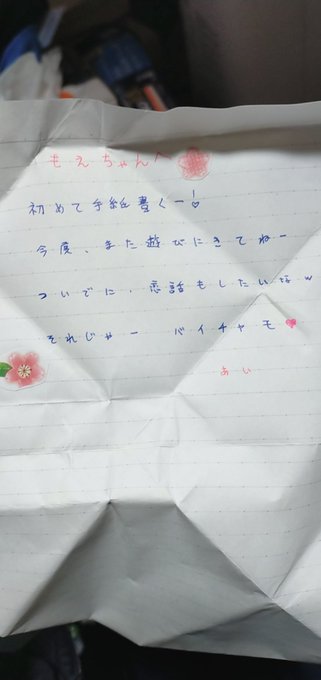 もえちゃんへ
初めて手紙書くー!
今度、また遊びにきてねー
ついでに、恋話もしたいなw
それじゃー バイチャモ
あい